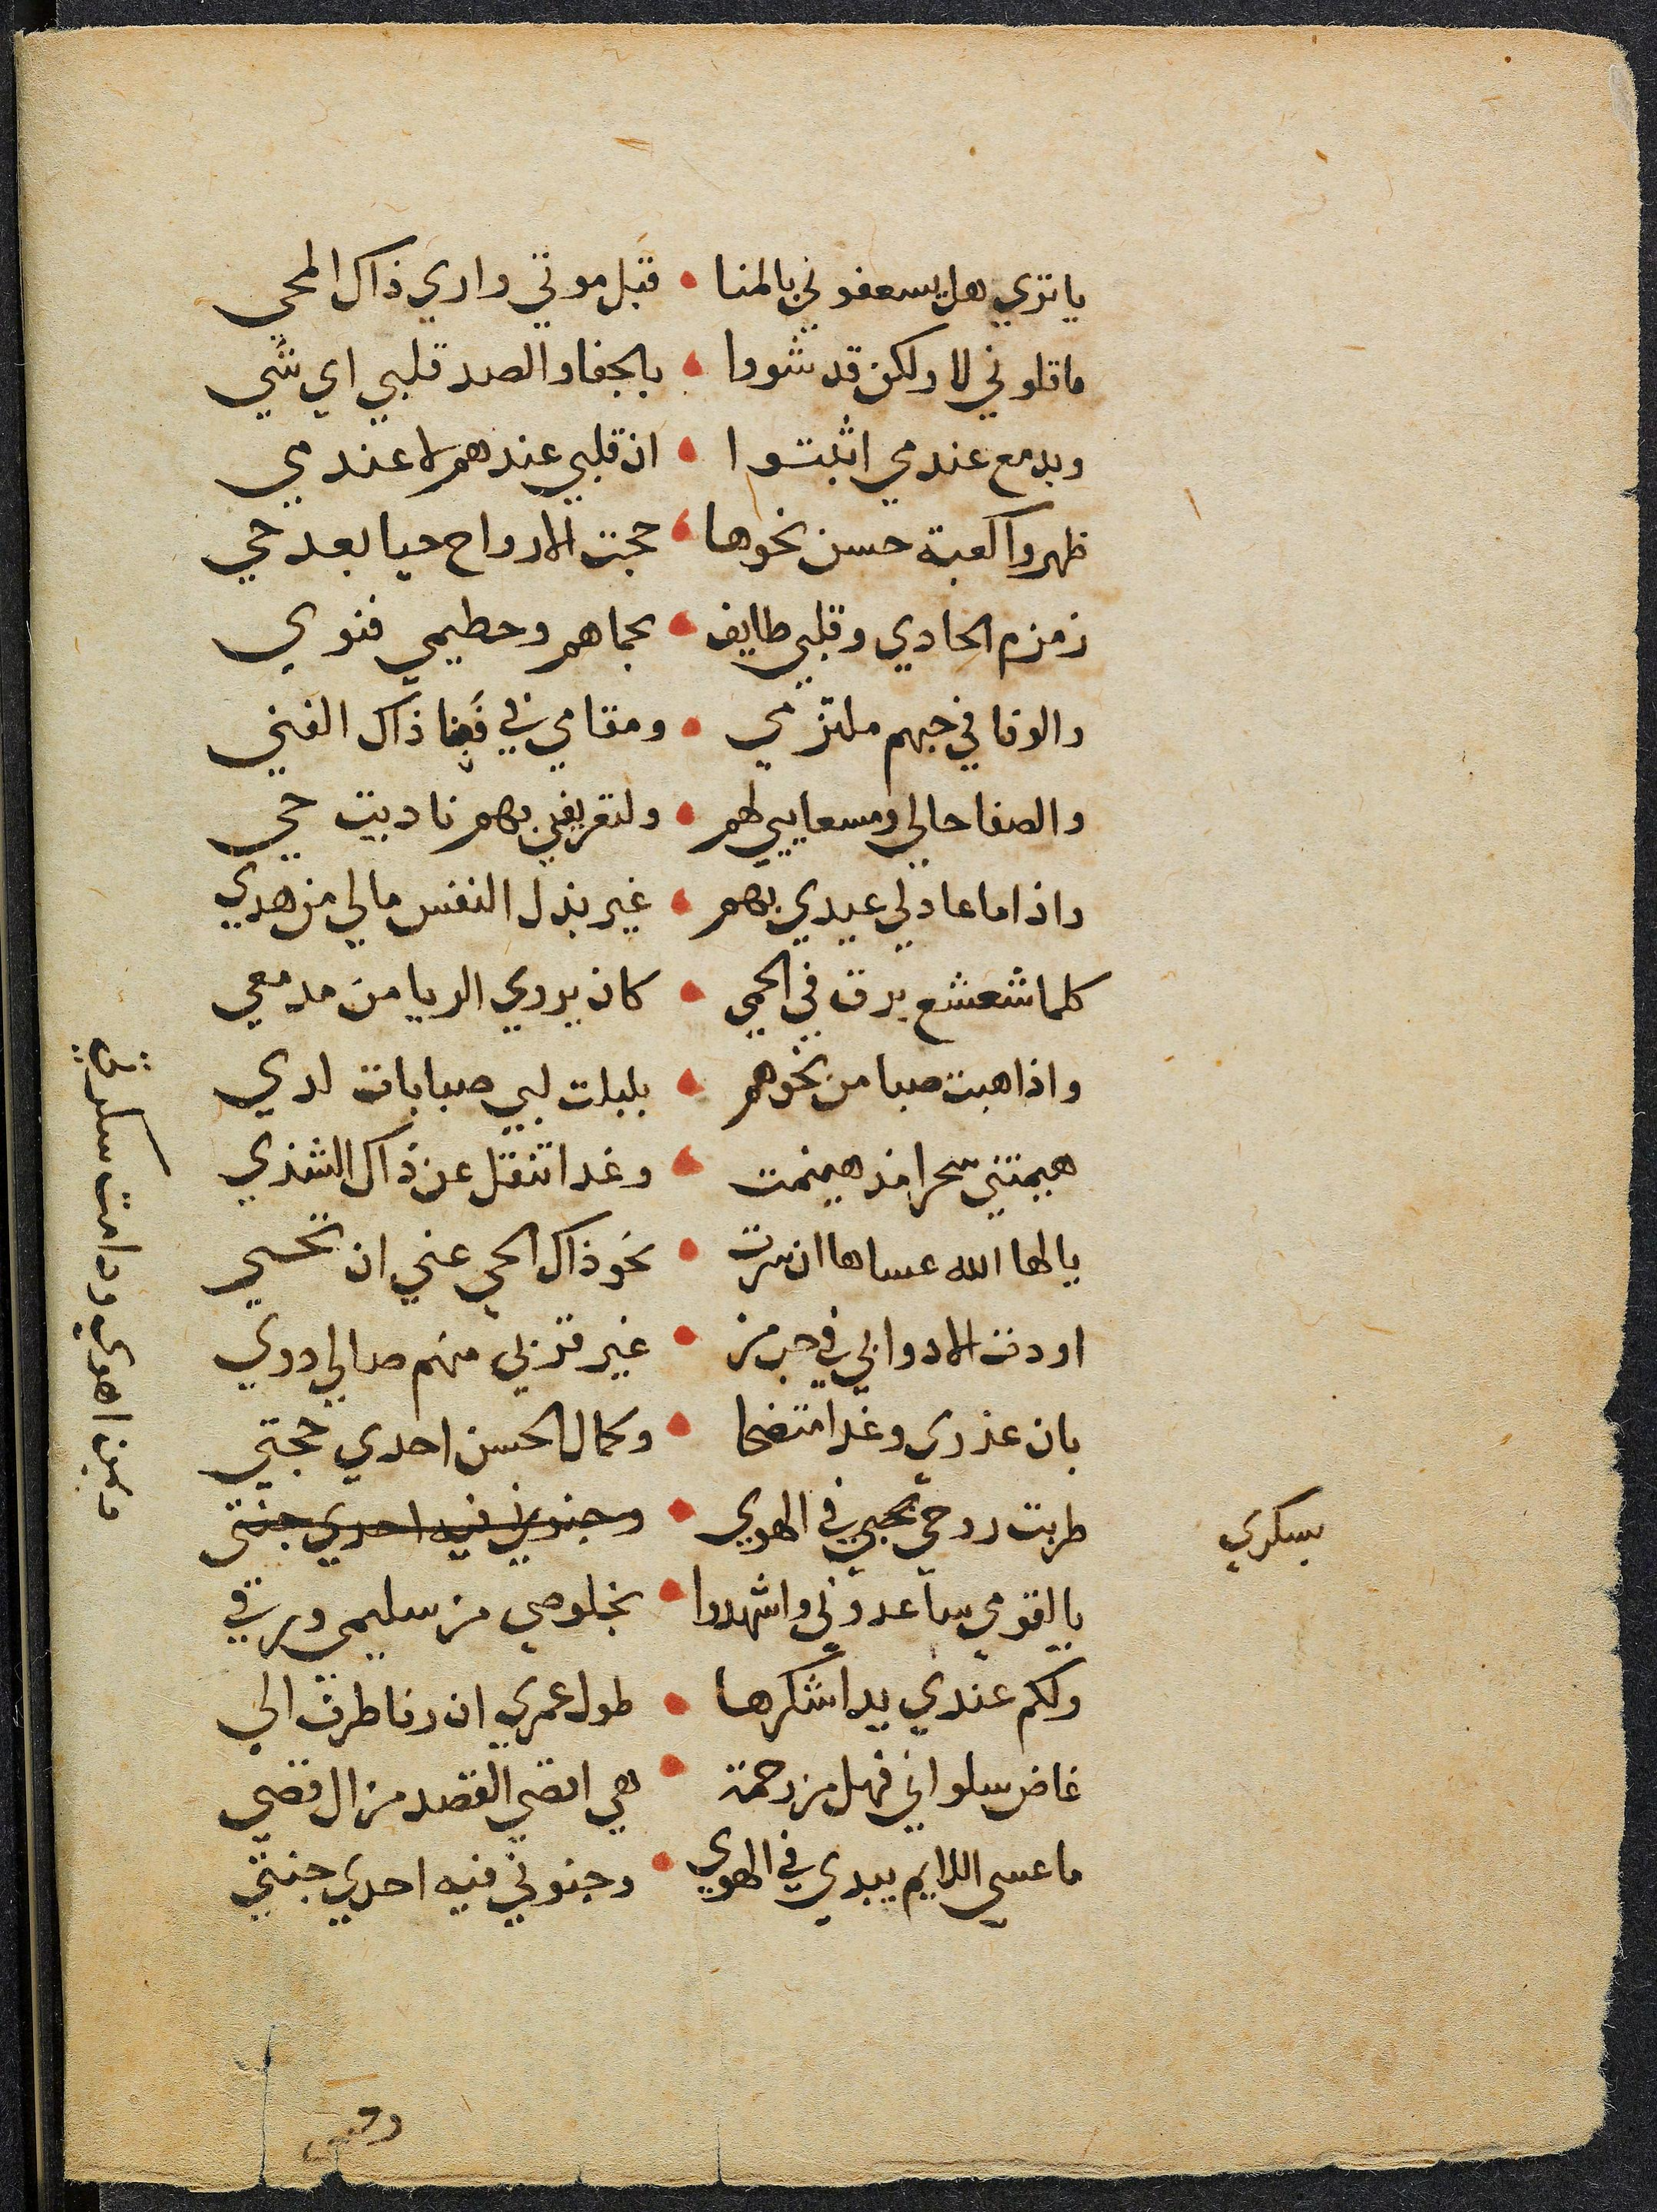 ياتري هل يسعفوني بالمنا • قبل موتي واري ذاك المحي
ماقلوني لا ولكن قد شووا • بالجفا والصد قلبي اي شي
وبدمع عندمي اثبتوا • ان قلبي عندهم لا عندي
ظهروا كعبة حسن نحوها • حجت الارواح حيا بعد حي
زمزم الحادي وقلبي طايف • بحماهم وحطيمي فنوي
والوفا في حبهم ملتزمي • ومقامي في فنا ذاك الفني
والصفا حالي ومسعايي لهم • ولتعريفي بهم ناديت حي
واذا ما عاد لي عيدي بهم • غير بذل النفس مالي من هدي
كلما شعشع برق في الحمي • كان يروي الريا من مدمعي
واذا هبت صبا من نحوهم • بلبلت لبي صبابات لدي
هيمتني سحرا مذ هينمت • وغدا تنقل عن ذاك الشذي
يالها الله عساها ان سرت • نحو ذاك الحي عني ان تحي
اودت الادوا بي في حب من • غير قربي منهم مالي دوي
بان عذري وغدا متضحا • وكمال الحسن احدي حجتي
طربت روحي بحبي في الهوي • وجنوني فيه احدي جنتي
بسكري
مابين اهوي ودامت سكرتي
يالقومي ساعدوني واشهدوا • بخلوصي من سليمي ورقي
ولكم عندي يد اشكرها • طول عمري ان رنا طرف الي
غاض سلواني فهل من رحمة • هي اقصي القصد من ال قصي
ما عسي اللايم يبدي في الهوي • وجنوني فيه احدي جنتي